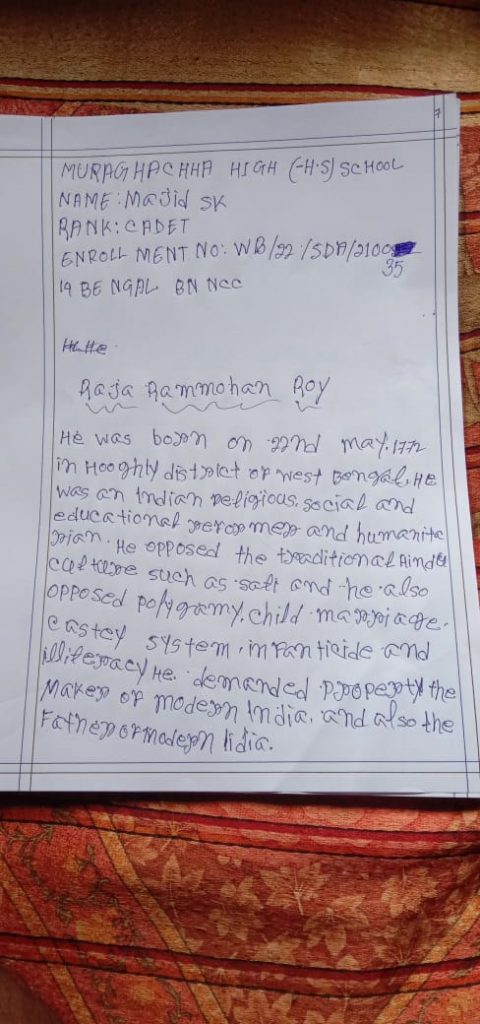 MURAGHACHHA HIGH (H.S) SCHOOL
NAME: Majid SK
RANK: CADET
ENROLL MENT NO: WB/22/SDA/2100
35
19 BENGAL BN NCC
Raja Rammohan Roy
He was born on 22nd may. 1772
in Hooghly district of west Bengal. He
was an Indian religious, social and
educational reformer and humanita
rian. He opposed the traditional Hindu
culture such as sati and he also
opposed polygamy, child marriage.
castey system. infanticide and
illiteracy He demanded property the
Maker of modern India. and also the
Father of modern Iidia.